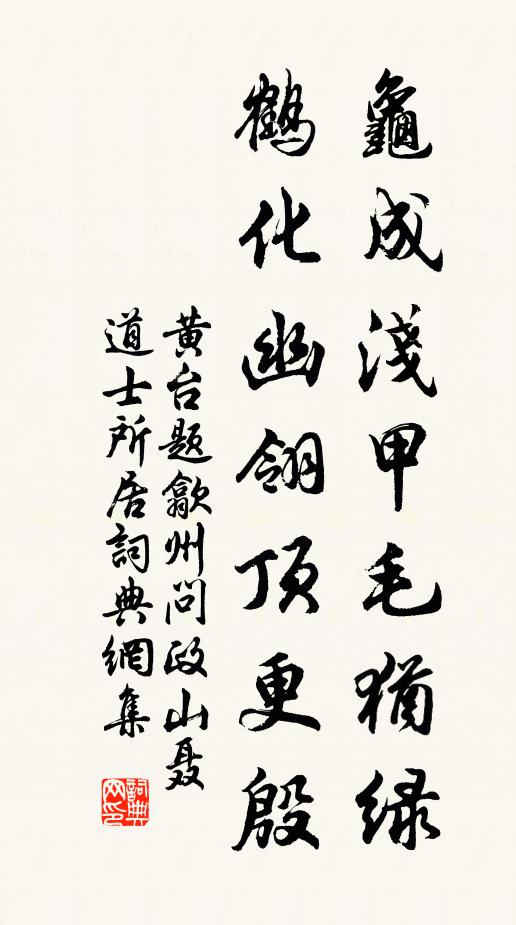 龜成淺甲毛猶绿
鶴化幽翎顶更殷
黄台题歙州问政山聂
道士所居詞典網集
詞典网印